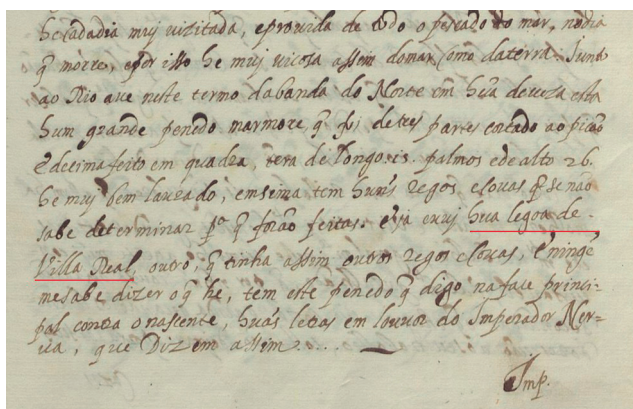 he cada dia muj uizitada, e prouida de todo o pescado do mar, nada
q̃ morre, e por isso he muj uicosa assim do mar como da terra. Junto
ao Rio aue neste termo da banda do Norte em hũa deueza esta
hum grande penedo marmore, q̃ foi de tres partes cortado ao picão
e de cima feito em quadra, tera de longo palmos e de alto 26.
he muj bem laurado, em sima tem huns regos, e couas q̃ se não
sabe determinar p.ª q̃ forão feitas. e ja euuj hua legoa de
Villa Real, outro, q̃ tinha assim outros regos e couas, e ningẽ
me sabe dizer o q̃ he, tem este penedo q̃ digo na face princi-
pal contra o nascente, huãs letras em louuor do Imperador Ner-
ua, que Dizem assim
Imp.